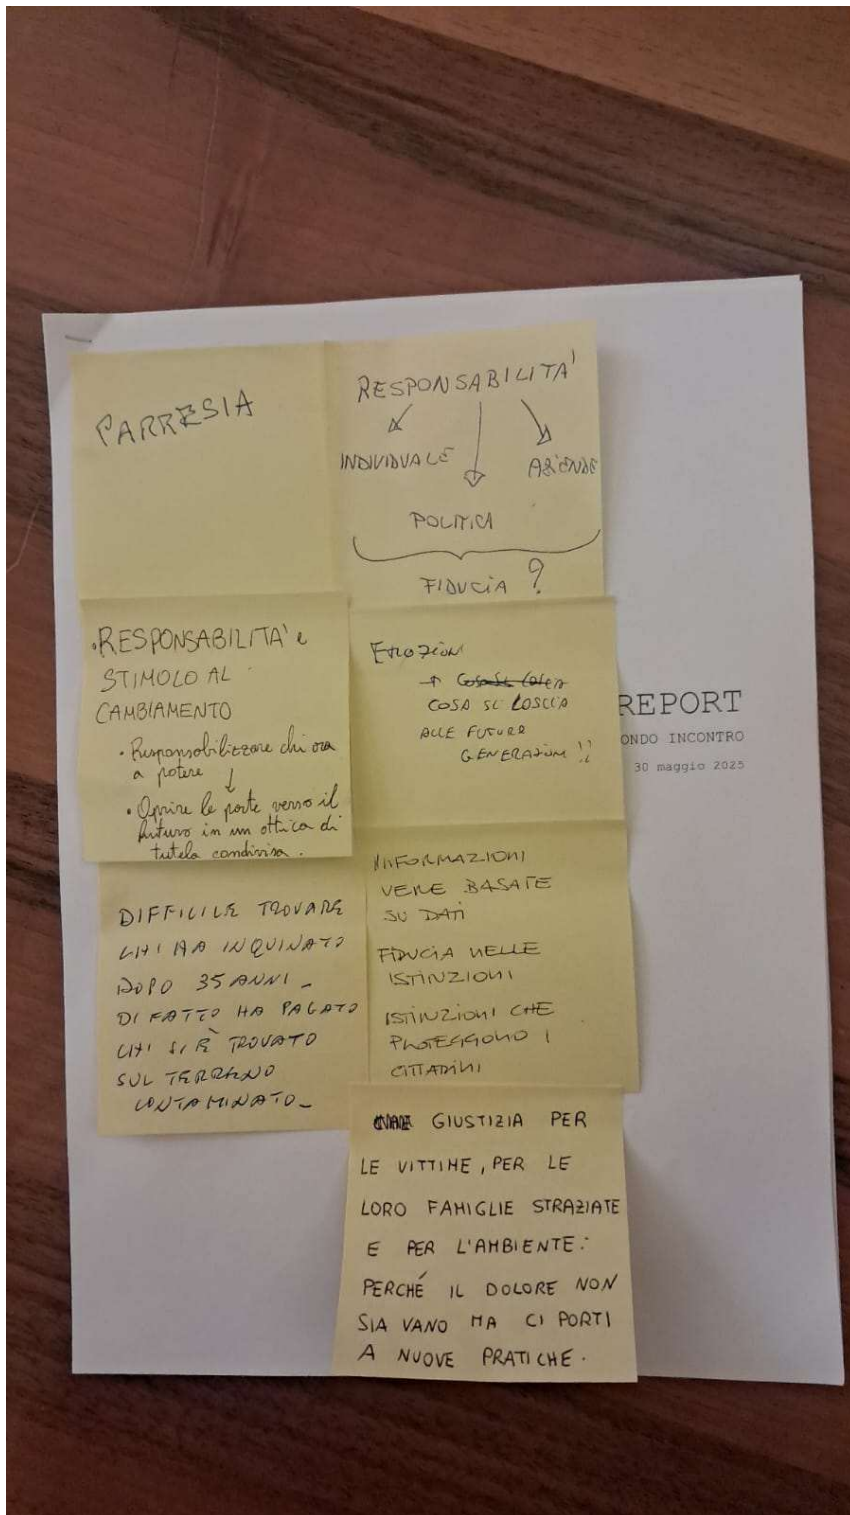 PARRESIA
RESPONSABILITA'
INDIVIDUALE
AZIENDE
POLITICA
FIDUCIA ?
• RESPONSABILITA' e
STIMOLO AL
CAMBIAMENTO
• Responsabilizzare chi ora
a potere
• Aprire le porte verso il
futuro in un ottica di
tutela condivisa.
EMOZIONI
COSA SI LASCIA
ALLE FUTURE
GENERAZIONI !!
REPORT
ONDO INCONTRO
30 maggio 2025
DIFFICILE TROVARE
CHI HA INQUINATO
DOPO 35 ANNI _
DI FATTO HA PAGATO
CHI SI È TROVATO
SUL TERRENO
CONTAMINATO _
INFORMAZIONI
VERE BASATE
SU DATI
FIDUCIA NELLE
ISTINZIONI
ISTINZIONI CHE
PROTEGGONO I
CITTADINI
GIUSTIZIA PER
LE VITTIME, PER LE
LORO FAMIGLIE STRAZIATE
E PER L'AMBIENTE:
PERCHÉ IL DOLORE NON
SIA VANO MA CI PORTI
A NUOVE PRATICHE.